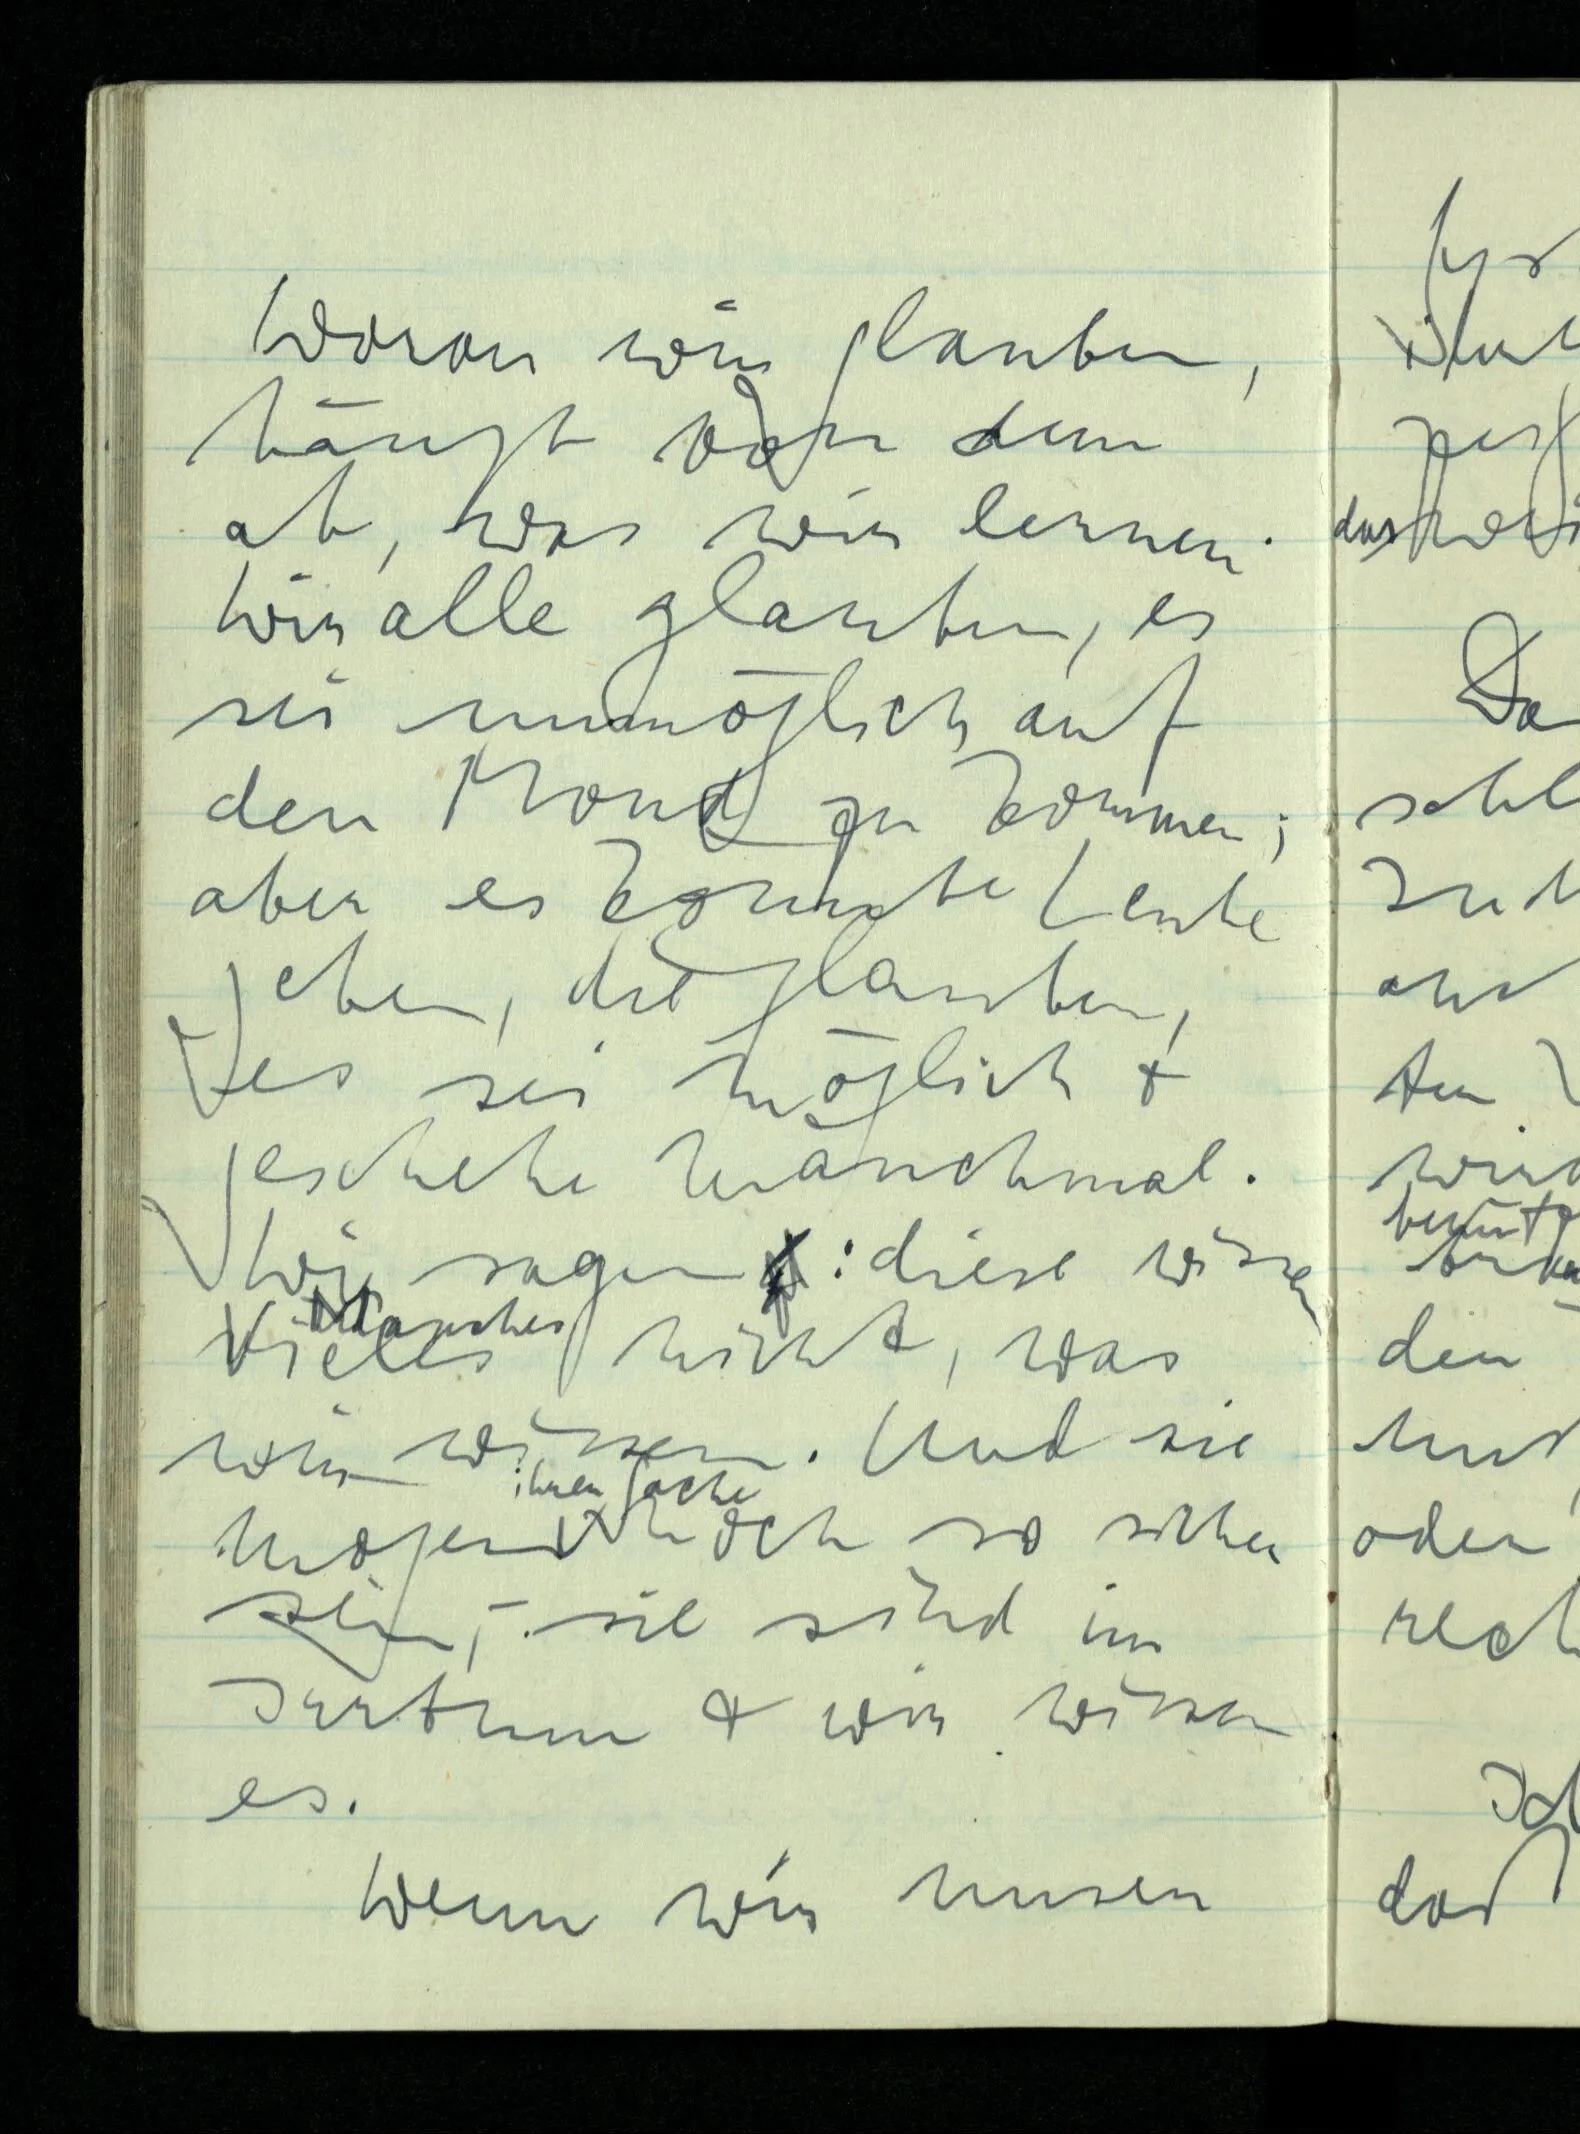 Woran wir glauben,
hängt von dem
ab, was wir lernen.
Wir alle glauben, es
sei unmöglich auf
den Mond zu kommen;
aber es könnte Leute
geben, die glauben,
es sei möglich &
geschehe manchmal.
Wir sagen : diese wissen
Manches
Vieles nicht, was
wir wissen. Und sie
ihrer Sache
mögen noch so sicher
sein, – sie sind im
Irrtum & wir wissen
es.
Wenn wir unser
das
den
oder